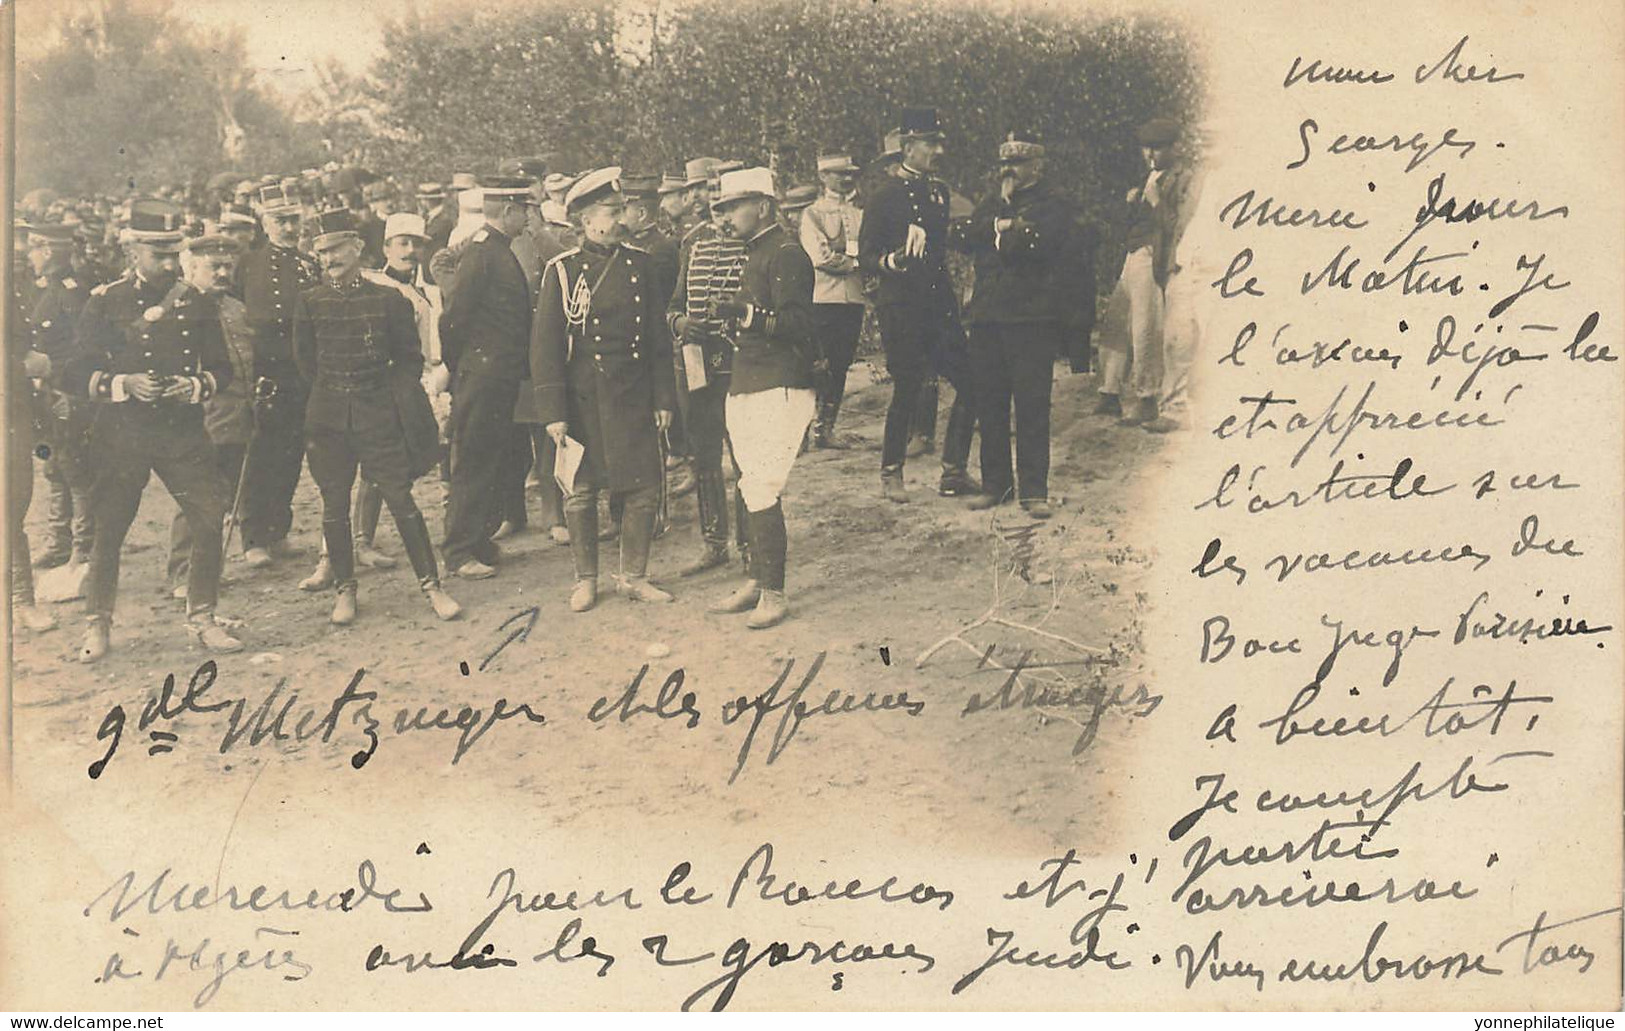 mon cher
Georges.
Merci pour
le Matin. Je
l'avais déjà lu
et apprécié
l'article sur
les vacances du
Bon Juge Parisien.
a bientôt,
Je compte
partir
gdl Metzinger et les officiers étrangers
Mercredi pour le et j'arriverai
à Algers avec les 2 garçons Jeudi. Vous embrasse tous
© delcampe.net
yonnephilatelique